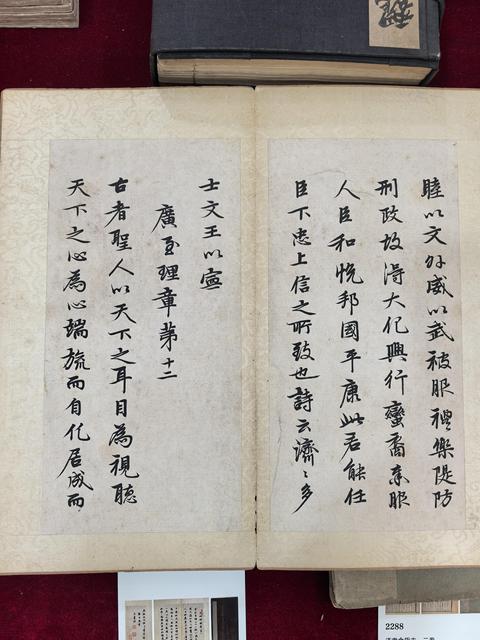 睦以文外威以武被服禮樂隄防
刑政故得大化興行蠻裔服
人臣和悅邦國平康此君能任
臣下忠上信之所致也詩云濟〻多
士文王以寧
廣至理章第十二
古者聖人以天下之耳目為視聽
天下之心為心端旒而自化居成而
2288